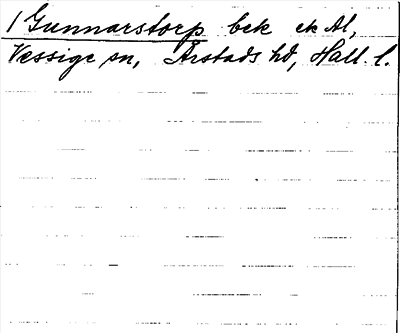 1 Gunnarstorp bek ek Al,
Vessige sn, Årstads hd, Hall. l.